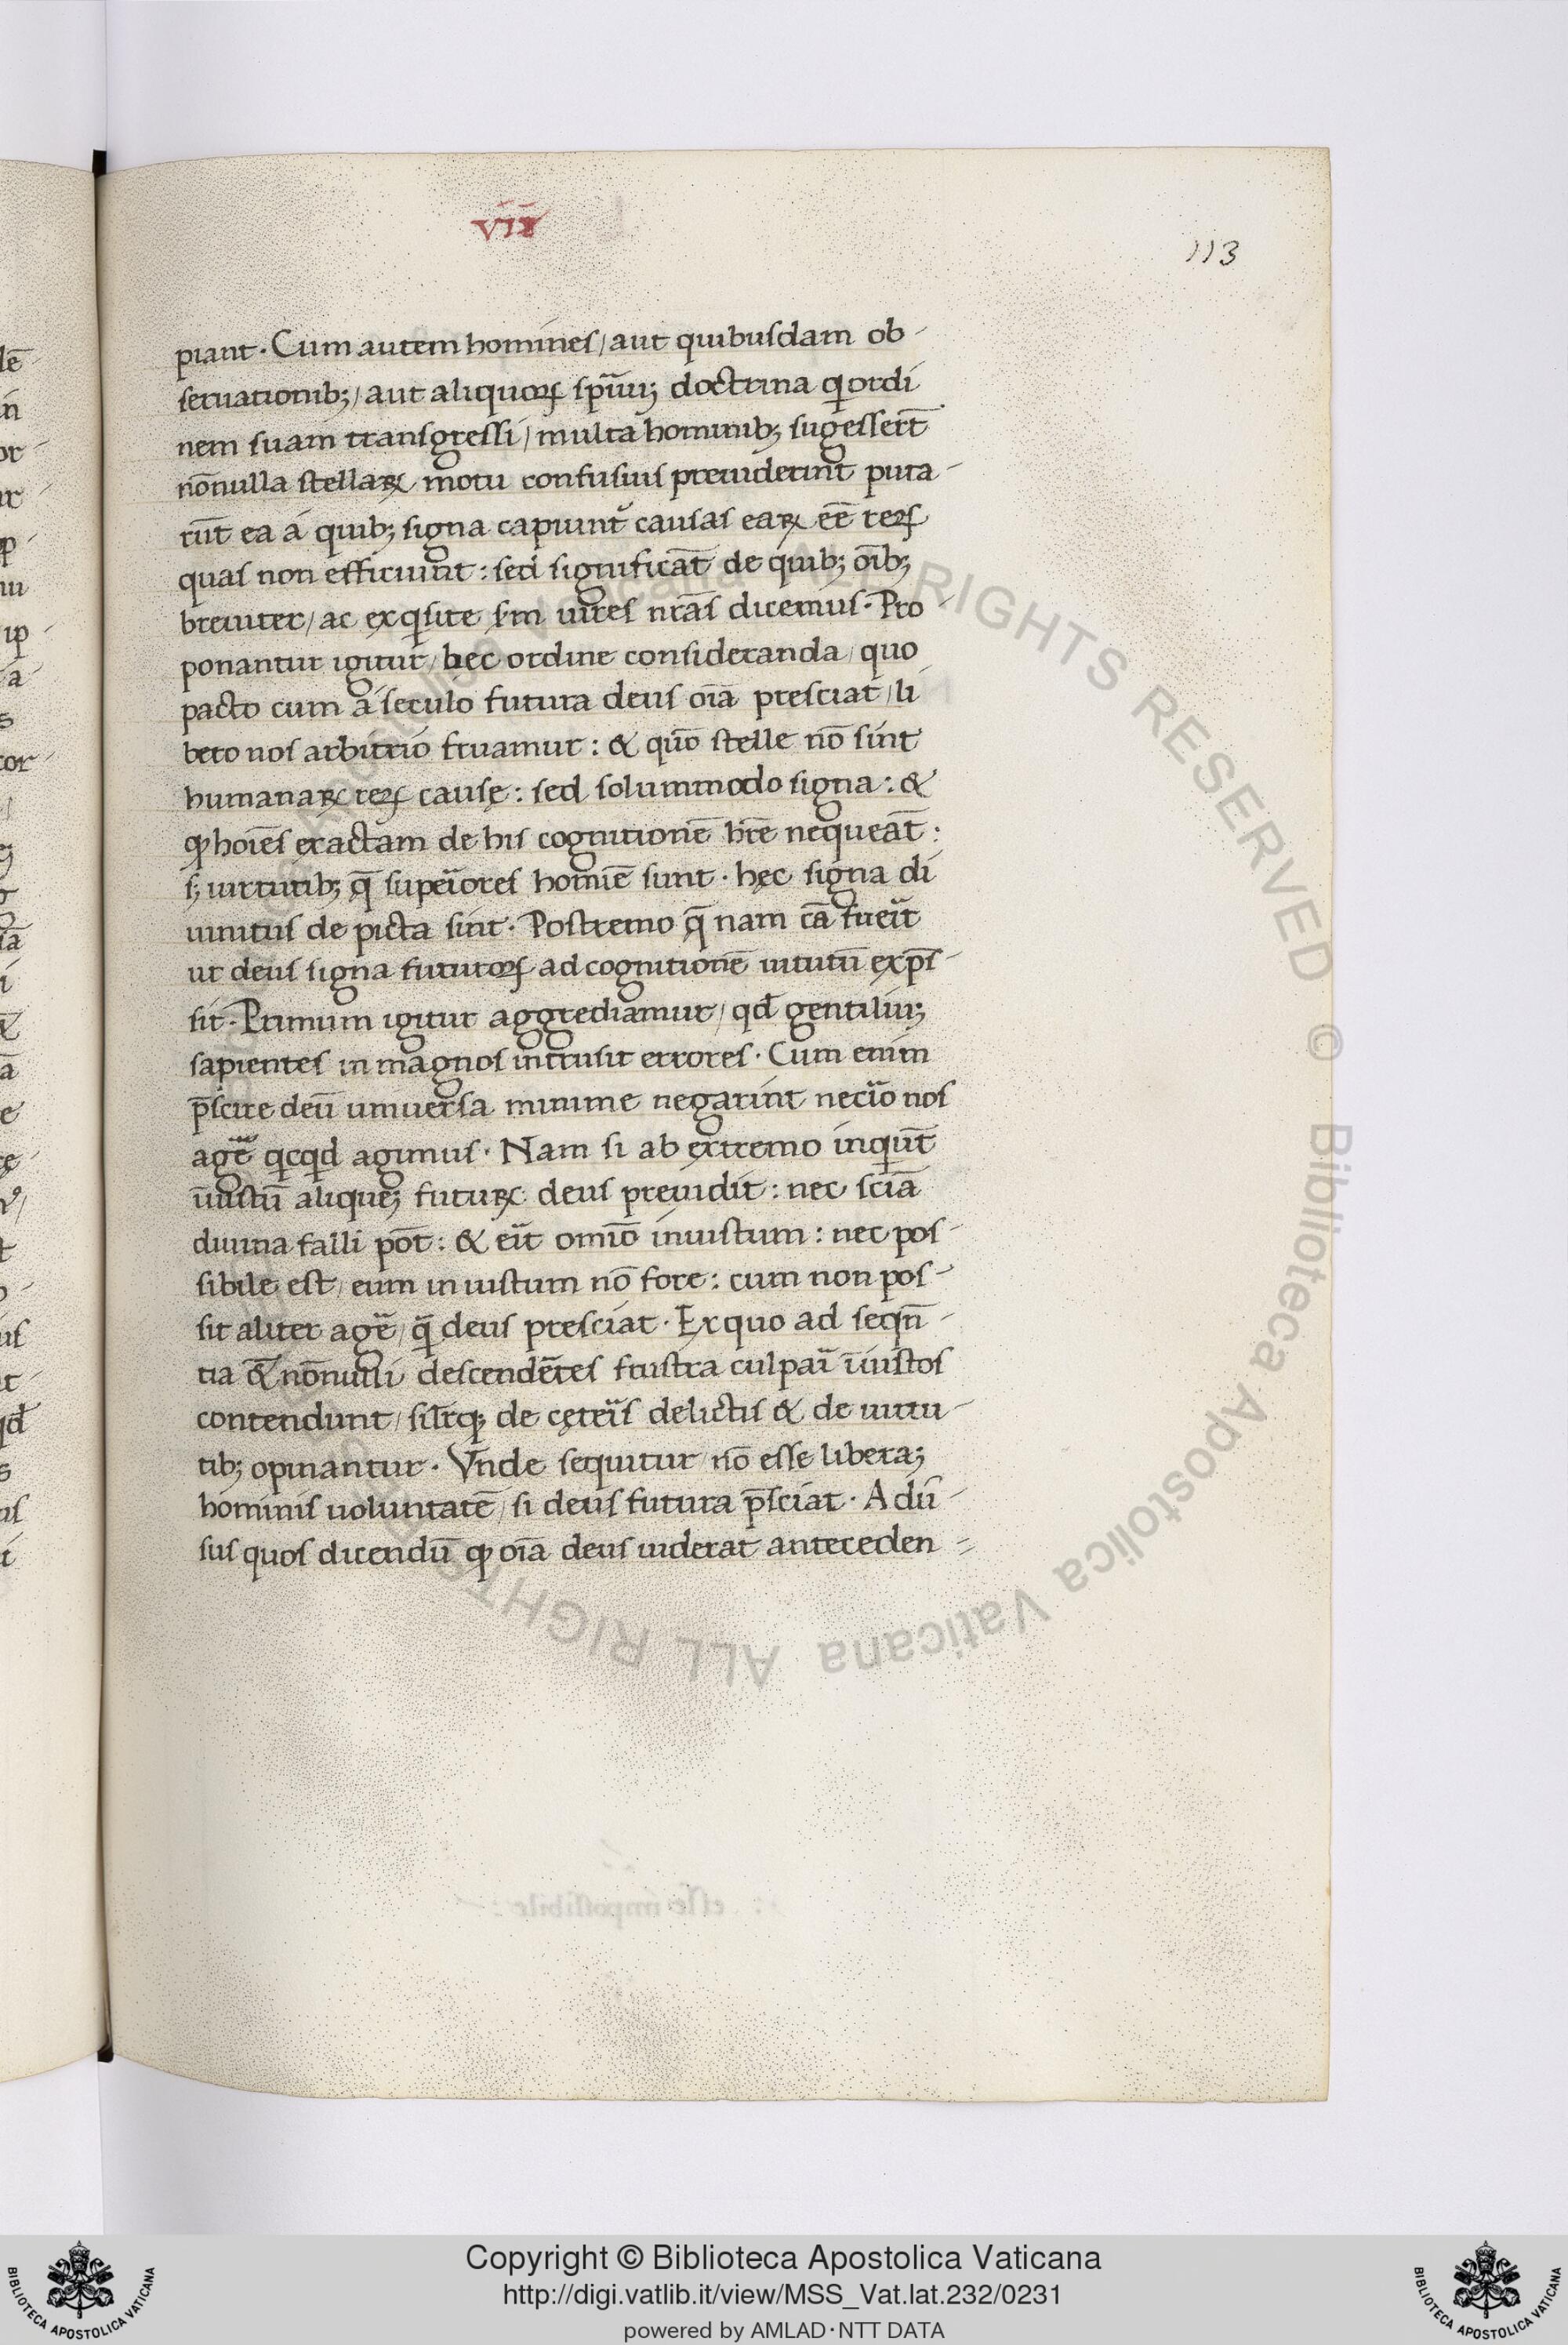 VII
113
piant · Cum autem homines / aut quibusdam ob-
seruationibꝫ / aut aliquoꝝ spũuꝫ doctrina qͥ ordi
nem suam transgressi / multa hominibꝫ sugesserт̄
nōnulla stellaꝝ motu confusius preuiderint puta-
rūt ea á quibꝫ signa capiunt᷑ causas eaꝝ eē̄ reꝝ
quas non efficiunt : sed significāt de quibꝫ oībꝫ
breuiter / ac exqͥsite s̄m uires nr̄as dicemus · Pro-
ponantur igitur / hec ordine consideranda / quo
pacto cum á seculo futura deus oīa presciat / li
bero nos arbitrio fruamur : & quō stelle nō sint
humanaꝝ reꝝ causę : sed solummodo signa : &
ꝙ hoīes exactam de his cognitionē hr̄e nequeāt :
sꝫ uirtutibꝫ q̄ supeiores homīe sunt · hęc signa di
uinitus de picta sint · Postremo q̄ nam cā fueĩt
ut deus signa futuroꝝ ad cognitionē uitutū exp̄s-
sit · Primum igitur aggrediamur / qd̄ gentiliuꝫ
sapientes in magnos intrusit errores · Cum enim
p̄scire deū uniuersa minime negarint neciõ nos
agẽ qͥcqͥd agimus · Nam si ab extremo inqͥūt
īiustū aliqueꝫ futuꝝ deus preuidit : nec sciā
diuina falli pōt : & eĩt omīo iniustum : nec pos-
sibile est / eum in iustum nō fore : cum non pos-
sit aliter agẽ / qͣ̄ deus presciat · Ex quo ad seqn̄-
tia &̄ nōnulli descendētes frustra culpaĩ īiustos
contendunt / sil̄rqꝫ de cęteĩs delictis & de uirtu-
tibꝫ opinantur · Vnde sequitur / nō esse liberaꝫ
hominis uoluntatē / si deus futura p̄sciat · Aduͥ-
sus quos dicendū ꝙ oīa deus uiderat anteceden=
Copyright © Biblioteca Apostolica Vaticana
http://digi.vatlib.it/view/MSS_Vat.lat.232/0231
powered by AMLAD·NTT DATA